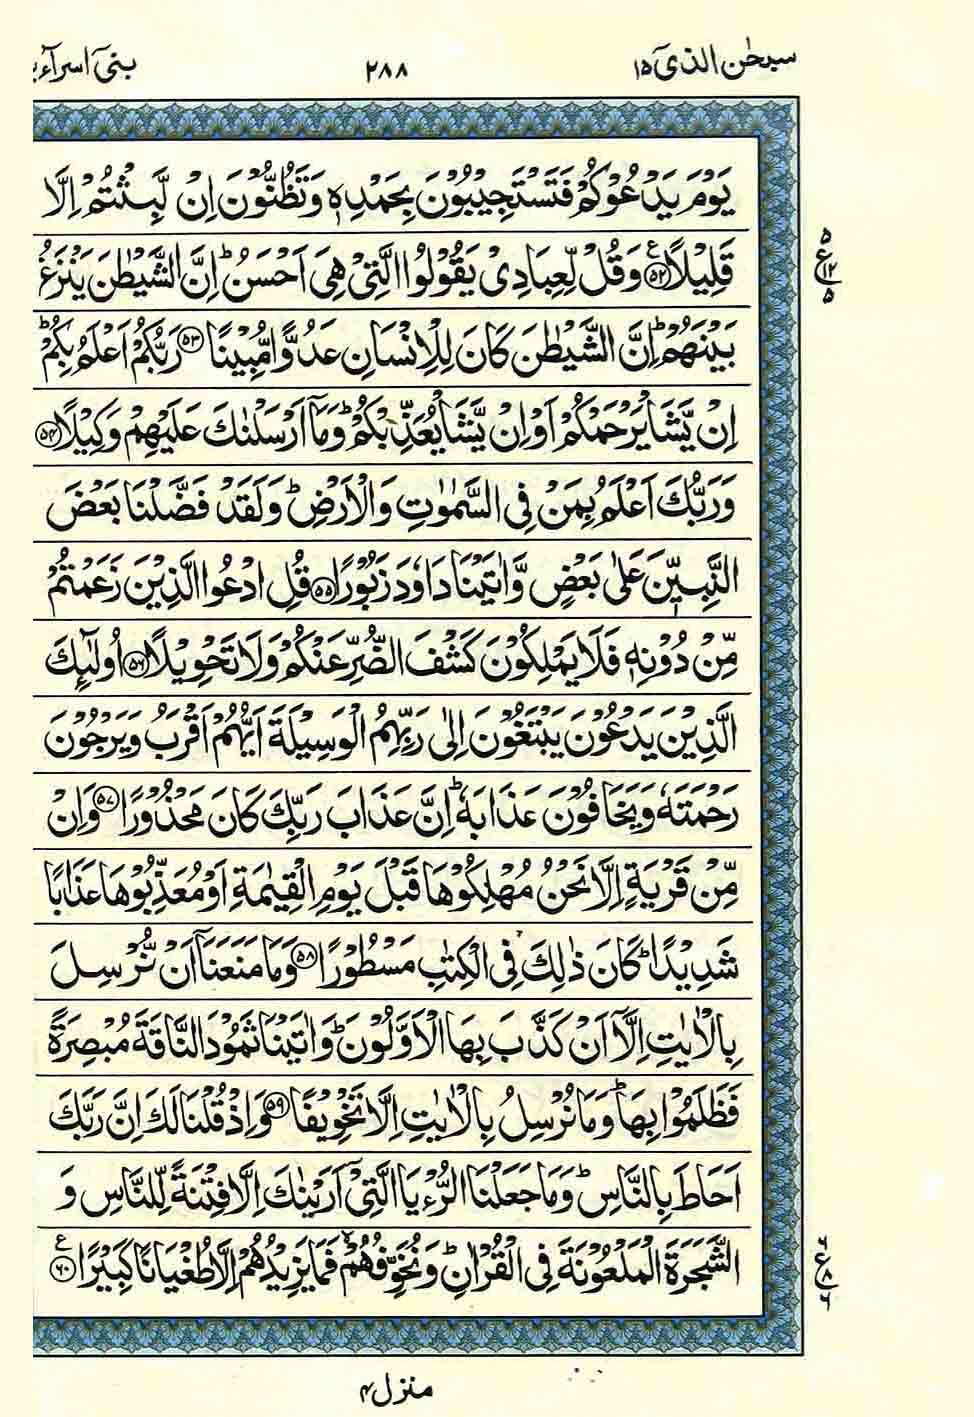 سبحٰن الذیٓ ١٥ ٢٨٨ بنیٓ اسرآء
يَوْمَ يَدْعُوْكُمْ فَتَسْتَجِيْبُوْنَ بِحَمْدِهٖ وَتَظُنُّوْنَ اِنْ لَّبِثْتُمْ اِلَّا
قَلِيْلًا ﴿٥٢﴾ ع وَقُلْ لِّعِبَادِيْ يَقُوْلُوا الَّتِيْ هِيَ اَحْسَنُ ؕ اِنَّ الشَّيْطٰنَ يَنْزَغُ
٥ ع ١٢ ٥
بَيْنَهُمْ ؕ اِنَّ الشَّيْطٰنَ كَانَ لِلْاِنْسَانِ عَدُوًّا مُّبِيْنًا ﴿٥٣﴾ رَبُّكُمْ اَعْلَمُ بِكُمْ ؕ
اِنْ يَّشَاْ يَرْحَمْكُمْ اَوْ اِنْ يَّشَاْ يُعَذِّبْكُمْ ؕ وَمَاۤ اَرْسَلْنٰكَ عَلَيْهِمْ وَكِيْلًا ﴿٥٤﴾
وَرَبُّكَ اَعْلَمُ بِمَنْ فِي السَّمٰوٰتِ وَالْاَرْضِ ؕ وَلَقَدْ فَضَّلْنَا بَعْضَ
النَّبِيّٖنَ عَلٰى بَعْضٍ وَّاٰتَيْنَا دَاوٗدَ زَبُوْرًا ﴿٥٥﴾ قُلِ ادْعُوا الَّذِيْنَ زَعَمْتُمْ
مِّنْ دُوْنِهٖ فَلَا يَمْلِكُوْنَ كَشْفَ الضُّرِّ عَنْكُمْ وَلَا تَحْوِيْلًا ﴿٥٦﴾ اُولٰٓئِكَ
الَّذِيْنَ يَدْعُوْنَ يَبْتَغُوْنَ اِلٰى رَبِّهِمُ الْوَسِيْلَةَ اَيُّهُمْ اَقْرَبُ وَيَرْجُوْنَ
رَحْمَتَهٗ وَيَخَافُوْنَ عَذَابَهٗ ؕ اِنَّ عَذَابَ رَبِّكَ كَانَ مَحْذُوْرًا ﴿٥٧﴾ وَاِنْ
مِّنْ قَرْيَةٍ اِلَّا نَحْنُ مُهْلِكُوْهَا قَبْلَ يَوْمِ الْقِيٰمَةِ اَوْ مُعَذِّبُوْهَا عَذَابًا
شَدِيْدًا ؕ كَانَ ذٰلِكَ فِي الْكِتٰبِ مَسْطُوْرًا ﴿٥٨﴾ وَمَا مَنَعَنَاۤ اَنْ نُّرْسِلَ
بِالْاٰيٰتِ اِلَّاۤ اَنْ كَذَّبَ بِهَا الْاَوَّلُوْنَ ؕ وَاٰتَيْنَا ثَمُوْدَ النَّاقَةَ مُبْصِرَةً
فَظَلَمُوْا بِهَا ؕ وَمَا نُرْسِلُ بِالْاٰيٰتِ اِلَّا تَخْوِيْفًا ﴿٥٩﴾ وَاِذْ قُلْنَا لَكَ اِنَّ رَبَّكَ
اَحَاطَ بِالنَّاسِ ؕ وَمَا جَعَلْنَا الرُّءْيَا الَّتِيْۤ اَرَيْنٰكَ اِلَّا فِتْنَةً لِّلنَّاسِ وَ
الشَّجَرَةَ الْمَلْعُوْنَةَ فِي الْقُرْاٰنِ ؕ وَنُخَوِّفُهُمْ ۙ فَمَا يَزِيْدُهُمْ اِلَّا طُغْيَانًا كَبِيْرًا ﴿٦٠﴾ ع
٦ ع ٨ ٦
منزل ٤